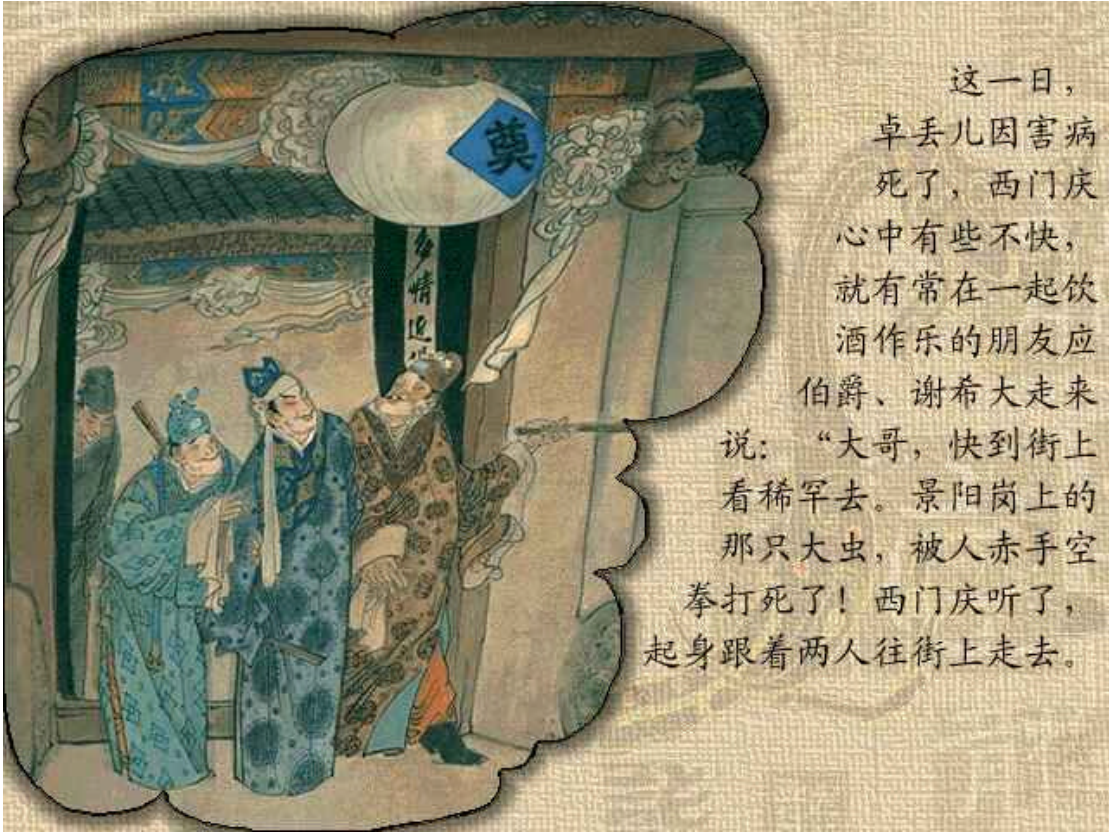 奠
多情近
这一日，
卓丢儿因害病
死了，西门庆
心中有些不快，
就有常在一起饮
酒作乐的朋友应
伯爵、谢希大走来
说：“大哥，快到街上
看稀罕去。景阳岗上的
那只大虫，被人赤手空
拳打死了！西门庆听了，
起身跟着两人往街上走去。